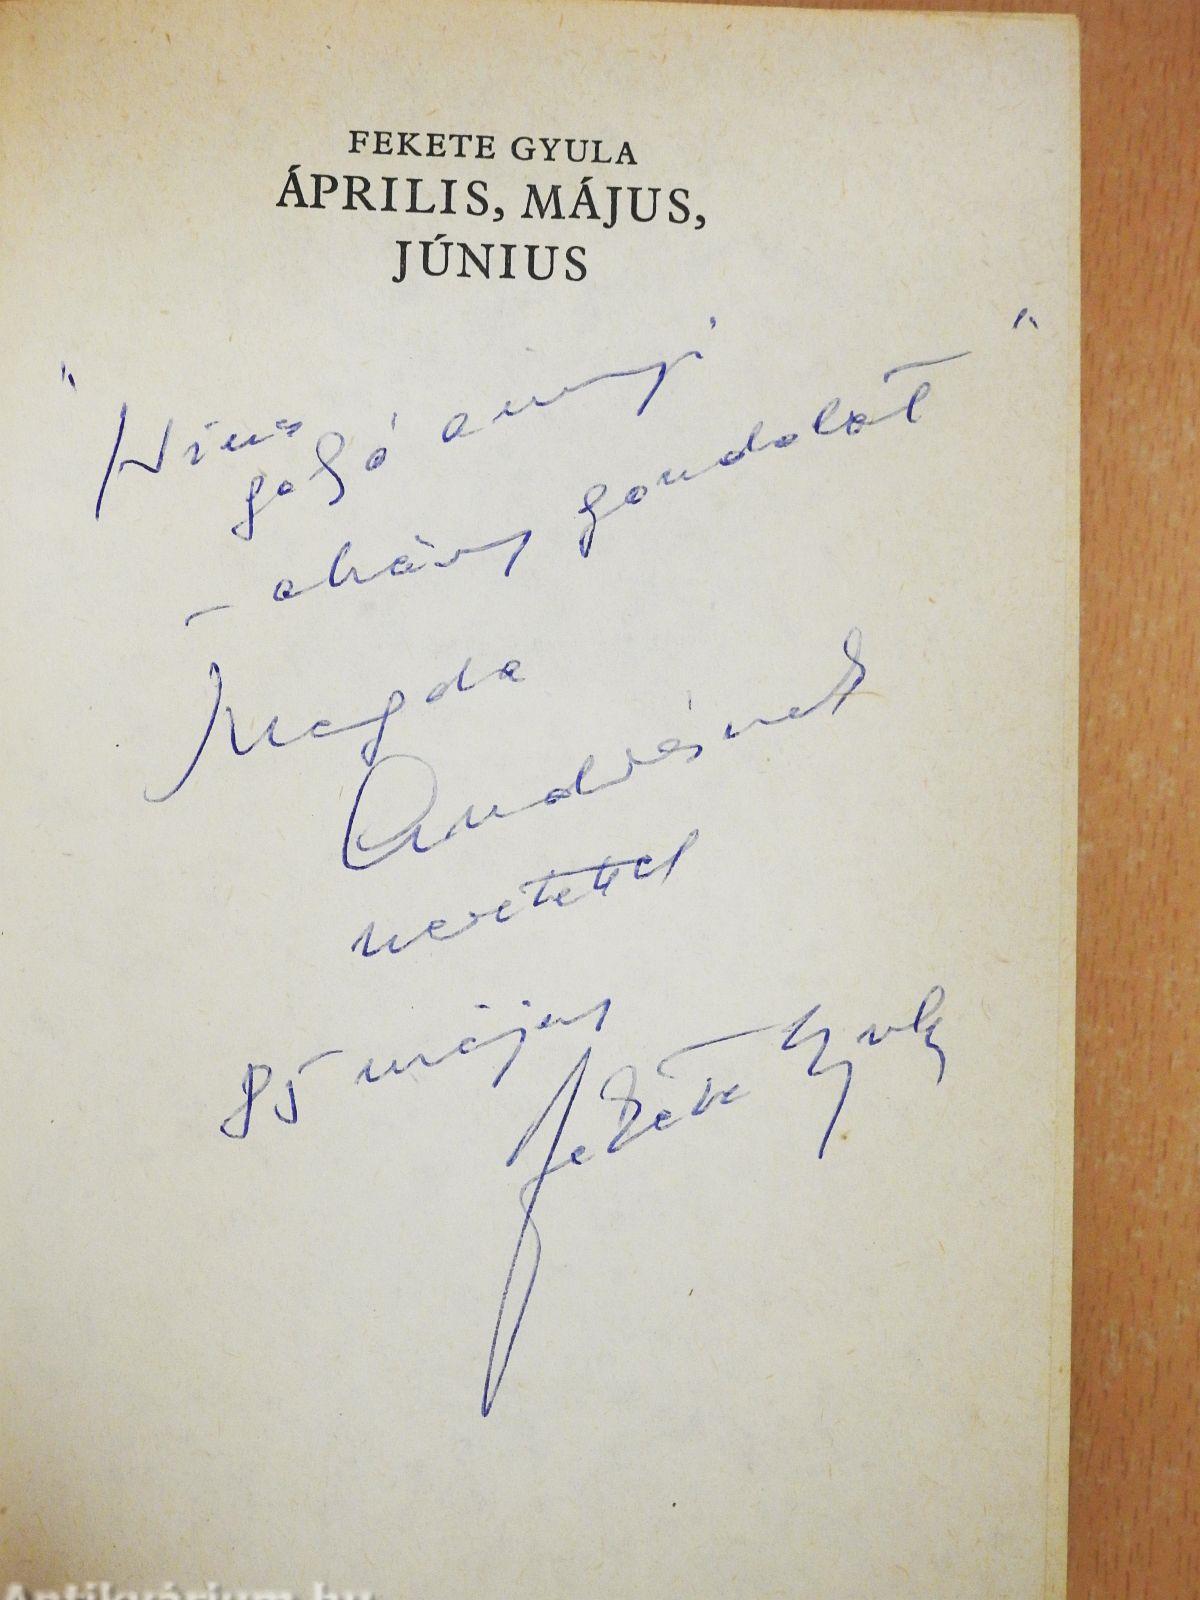 FEKETE GYULA
ÁPRILIS, MÁJUS,
JÚNIUS
"Nincs
golyó annyi
- ahány gondolat"
Magda
Andrásnak
szeretettel
85 május
Fekete Gyula
Antikvárium.hu